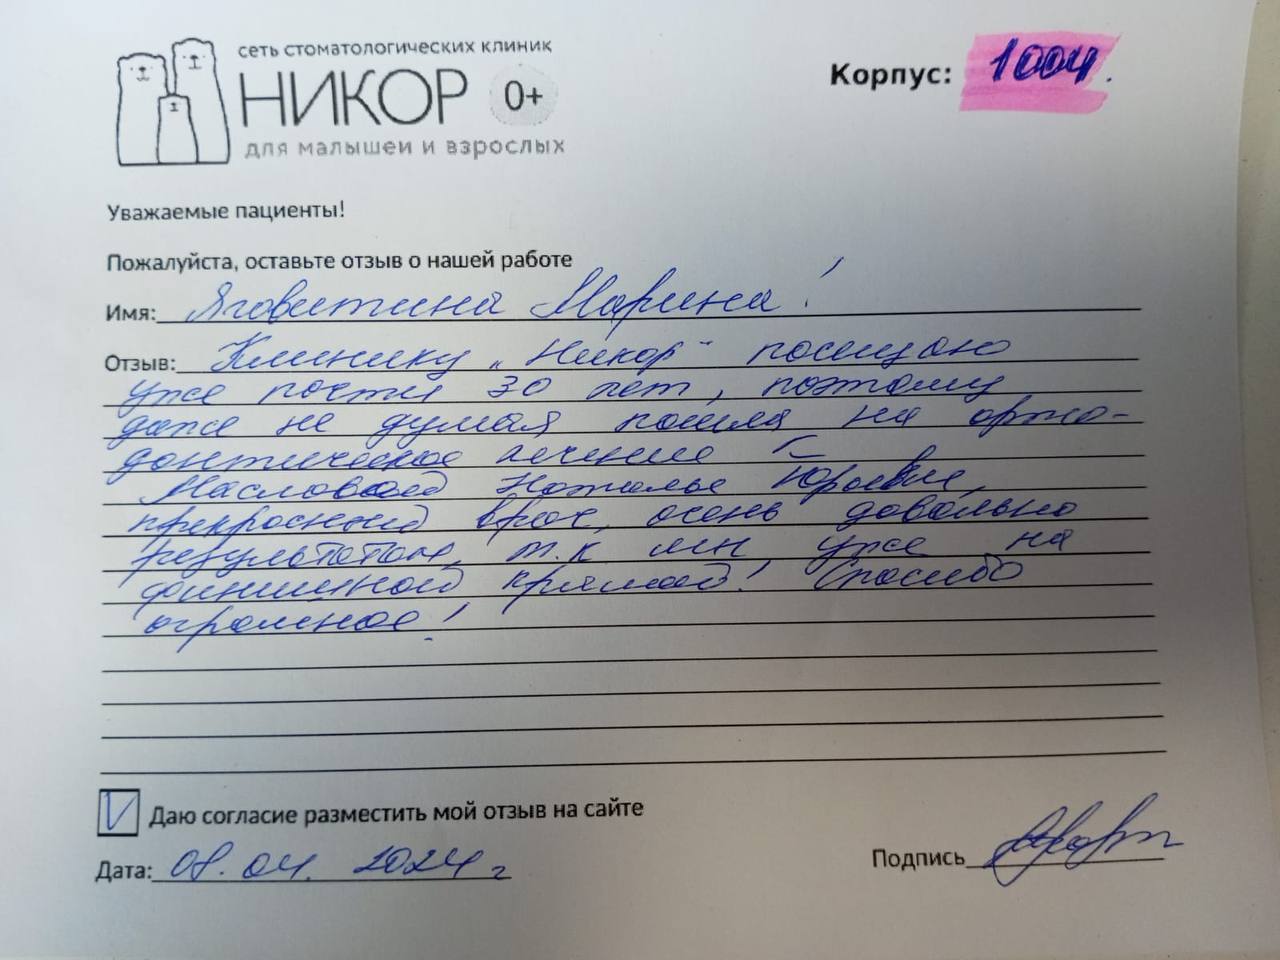 сеть стоматологических клиник
НИКОР 0+
для малышей и взрослых
Корпус: 1004.
Уважаемые пациенты!
Пожалуйста, оставьте отзыв о нашей работе
Имя: Яговитина Марина!
Отзыв: Клинику "Никор" посещаю
уже почти 30 лет, поэтому
даже не думая пошла на орто-
донтическое лечение к
Масловой Наталье Юрьевне,
прекрасный врач, очень довольна
результатом, т.к мы уже на
финишной прямой! Спасибо
огромное!
Даю согласие разместить мой отзыв на сайте
Дата: 08.04.2024г
Подпись